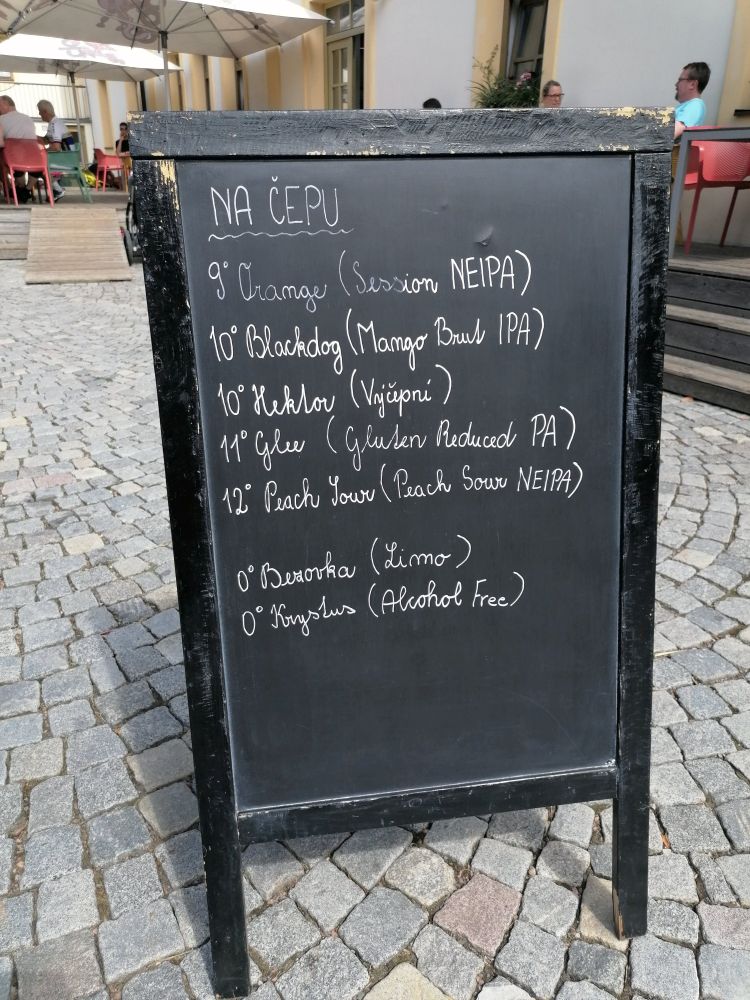 NA ČEPU
9° Orange (Session NEIPA)
10° Blackdog (Mango Brut IPA)
10° Hektor (Výčepní)
11° Glee (Gluten Reduced PA)
12° Peach Sour (Peach Sour NEIPA)
0° Bezovka (Limo)
0° Krystus (Alcohol Free)